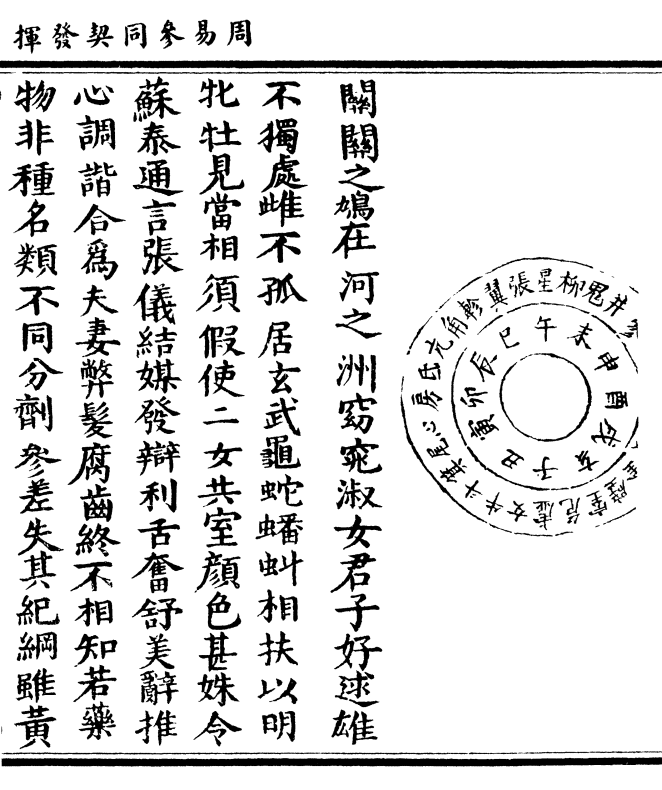 周易參同契發揮
關關之鳩在河之洲窈窕淑女君子好逑雄
不獨處雌不孤居玄武龜蛇蟠虬相扶以明
牝牡見當相須假使二女共室顏色甚姝令
蘇秦通言張儀結媒發辯利舌奮舒美辭推
心調諧合爲夫妻弊髮腐齒終不相知若藥
物非種名類不同分劑參差失其紀綱雖黃
子丑寅卯辰巳午未申酉戌亥
井鬼柳星張翼軫角亢氐房心尾箕斗牛女虛危室壁